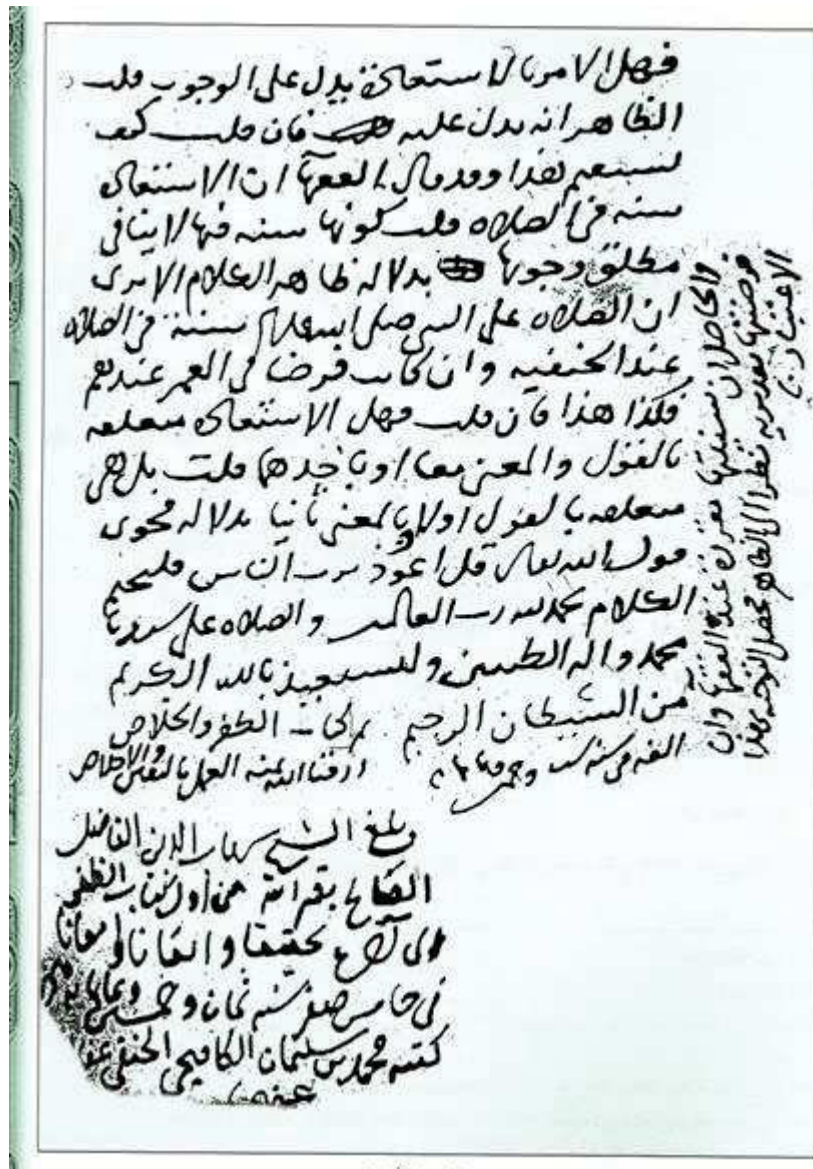 فهل الامر بالاستعاذة يدل على الوجوب قلت
الظاهر انه يدل عليه فان قلت كيف
يستقيم هذا وقد قال الفقهآ ان الاستعاذه
سنه في الصلاه قلت كونها سنه فيها لا ينافي
مطلق وجوبها بدلاله ظاهر الكلام الا يرى
ان الصلاه على النبي صلى الله عليه وسلم سنة في الصلاه
عند الحنفيه وان كانت فرضا في العمر عندهم
فكذا هذا فان قلت فهل الاستعاذه متعلقه
بالقول والمعنى معا او باحدهما قلت بل هي
متعلقه بالقول اولا وبالمعنى ثانيا بدلاله فحوى
قول الله تعالى قل اعوذ برب الناس فليختم
الكلام بحمد لله رب العالمين والصلاه على سيدنا
محمد واله الطيبين وليستعيذ بالله الكريم
من الشيطان الرجيم
الفه في سنه ست وخمسين
تم كتاب الظفر والخلاص
ارزقنا الله بمنه العمل باليقين والاخلاص
والحاصل ان سنيتها مقررة عند الفقها وان
فرضيتها نظرا الى الظاهر فحصل التوجه بهذا
الاعتبار
وبلغ الشيخ شهاب الدين الفاضل
الصالح بقراته من اول كتاب الظفر
الى آخره تحقيقا واتقانا وامعانا
في خامس صفر سنه ثمان وخمسين وثمانمايه
كتبه محمد بن سليمان الكافيجي الحنفي عفا
عنهما